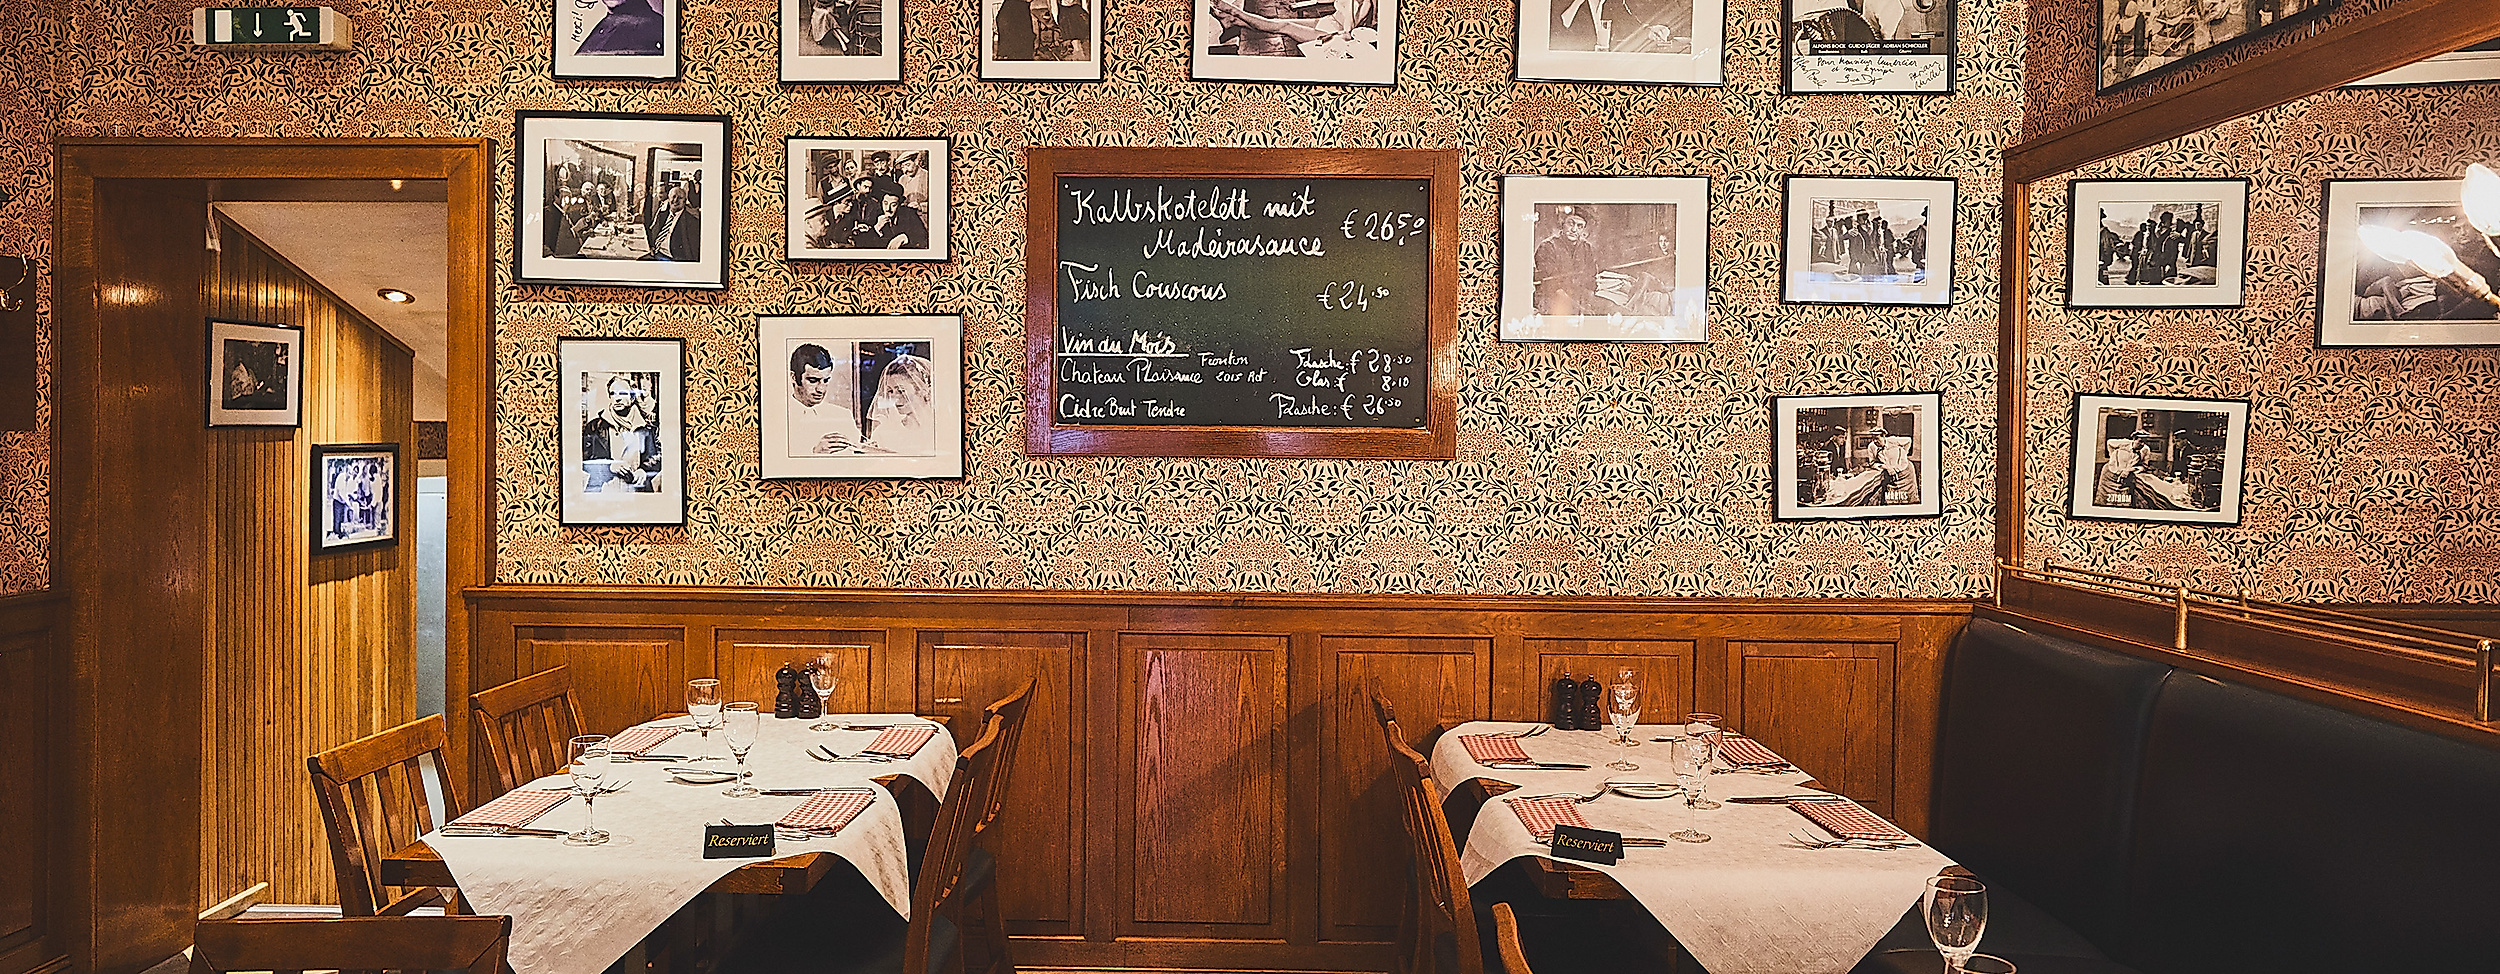 Merci
ALFONS BOCK GUIDO JÄGER ADRIAN SCHICKLER
Pour Monsieur
Kalbskotelett mit
Madeirasauce € 26,50
Fisch Couscous € 24,50
Vin du Mois
Chateau Plaisance Fronton 2015 Flasche: € 28.50
Glas: € 8.10
Cidre Brut Tendre Flasche: € 26.50
Reserviert
Reserviert